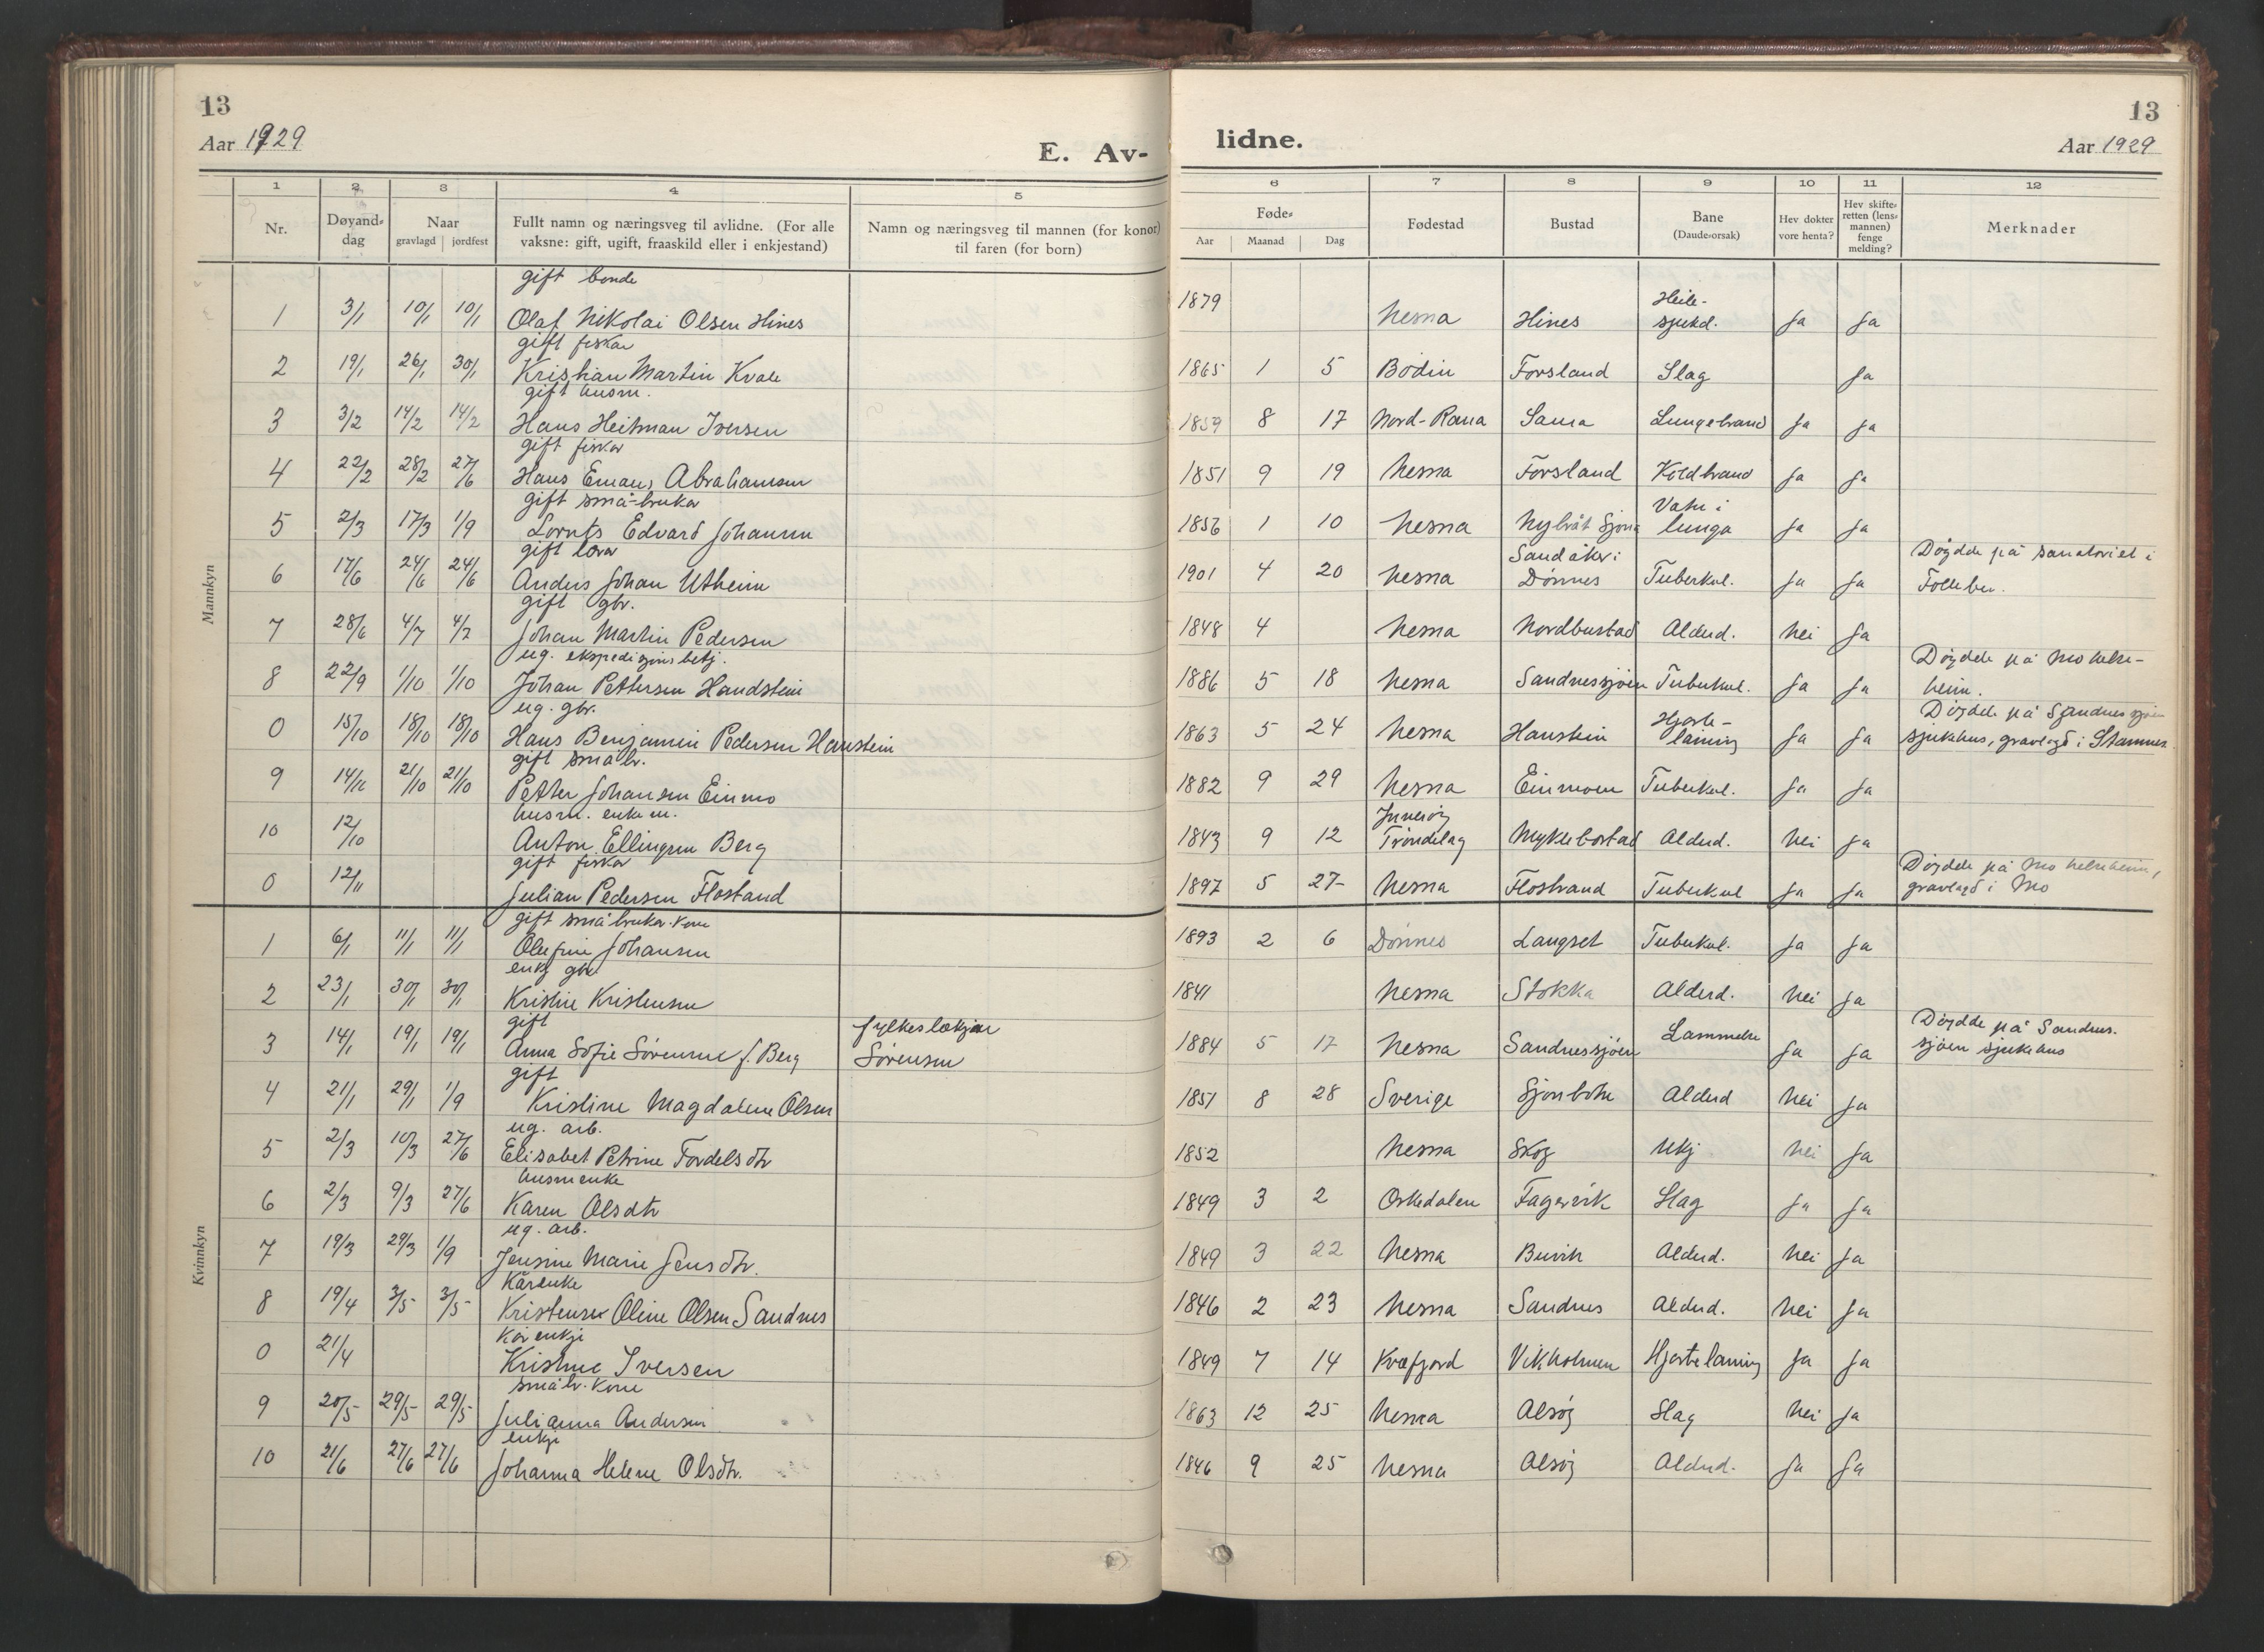 13
Aar 1929
E. Av-
lidne.
13
Aar 1929
1 2 3 4 5 6 7 8 9 10 11 12
Nr.
Døyand-
dag
Naar
gravlagd | jordfest
Fullt namn og næringsveg til avlidne. (For alle
vaksne: gift, ugift, fraaskild eller i enkjestand)
Namn og næringsveg til mannen (for konor)
til faren (for born)
Føde-
Aar Maanad Dag
Fødestad
Bustad
Bane
(Daude-orsak)
Hev dokter
vore henta?
Hev skifte-
retten (lens-
mannen)
fenge
melding?
Merknader
Mannkyn
gift bonde
1 3/1 10/1 10/1 Olaf Nikolai Olsen Hines 1879 Nesna Hines Heile-
sjukd. Ja Ja
gift fiskar
2 19/1 26/1 30/1 Kristian Martin Kvale 1865 1 5 Bodin Forsland Slag Ja
gift husm.
3 3/2 14/2 14/2 Hans Heitman Iversen 1859 8 17 Nord-Rana Saura Lungebrand Ja Ja
gift fiskar
4 22/2 28/2 27/6 Hans Emanl Abrahamsen 1851 9 19 Nesna Forsland Koldbrand Ja Ja
gift små-brukar
5 2/3 17/3 1/9 Lornts Edvard Johansen 1856 1 10 Nesna Nybråt Sjona Vatn i
lunga Ja Ja
gift lærar
6 17/6 24/6 24/6 Anders Johan Utheim 1901 4 20 Nesna Sandåker i
Dønnes Tuberkul. Ja Ja Døydde på sanatoriet i
Follebu.
gift gbr.
7 28/6 4/7 4/7 Johan Martin Pedersen 1848 4 Nesna Nordbustad Alderd. Nei Ja
ug. ekspedisjons betj.
8 22/9 1/10 1/10 Johan Pettersen Handstein 1886 5 18 Nesna Sandnessjøen Tuberkul. Ja Ja Døydde på Mo helse-
heim.
ug. gbr.
0 15/10 18/10 18/10 Hans Benjamin Pedersen Hanstein 1863 5 24 Nesna Hanstein Hjarte-
laming Ja Ja Døydde på Sandnessjøen
sjukehus, gravlagd i Stamnes.
gift småbr.
9 14/10 21/10 21/10 Petter Johansen Einmo 1882 9 29 Nesna Einmoen Tuberkul. Ja Ja
husm. enkem.
10 12/10 Anton Ellingsen Berg 1843 9 12 Inderøy
Trøndelag Myklebostad Alderd. Nei Ja
gift fiskar
0 12/11 Julian Pedersen Flostand 1897 5 27 Nesna Flostrand Tuberkul Ja Ja Døydde på Mo helseheim,
gravlagd i Mo
Kvinnkyn
gift småbrukar-kone
1 6/1 11/1 11/1 Olufine Johansen 1893 2 6 Dønnes Langset Tuberkul. Ja Ja
enkj gbr.
2 23/1 30/1 30/1 Kristine Kristensen 1841 Nesna Stokka Alderd. Nei Ja
gift
3 14/1 19/1 19/1 Anna Sofie Sørensen f. Berg fylkeslækjar
Sørensen 1884 5 17 Nesna Sandnessjøen Lammelse Ja Ja Døydde på Sandnes-
sjøen sjukehus
gift
4 21/1 29/1 1/9 Kristine Magdalene Olsen 1851 8 28 Sverige Sjonbotn Alderd Nei Ja
ug. arb.
5 2/3 10/3 27/6 Elisabet Petrine Tordelsdtr 1852 Nesna Skog Ukj Nei Ja
husmenke
6 2/3 9/3 27/6 Karen Olsdtr 1849 3 2 Orkedalen Fagervik Slag Ja Ja
ug. arb.
7 19/3 29/3 1/9 Jensine Marie Jensdtr. 1849 3 22 Nesna Buvik Alderd. Nei Ja
Kårenke
8 19/4 3/5 3/5 Kristense Oline Olsen Sandnes 1846 2 23 Nesna Sandnes Alderd. Nei Ja
Kårenkje
0 21/4 Kristine Iversen 1849 7 14 Kvæfjord Vikholmen Hjertelaming Ja Ja
småbr. kone
9 20/5 29/5 29/5 Julianna Andersen 1863 12 25 Nesna Alsøy Slag Nei Ja
enkje
10 21/6 27/6 27/6 Johanna Helene Olsdtr. 1846 9 25 Nesna Alsøy Alderd. Ja Ja